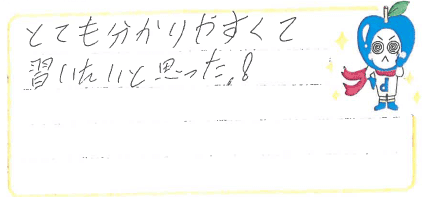 とても分かりやすくて
習いたいと思った。!
d